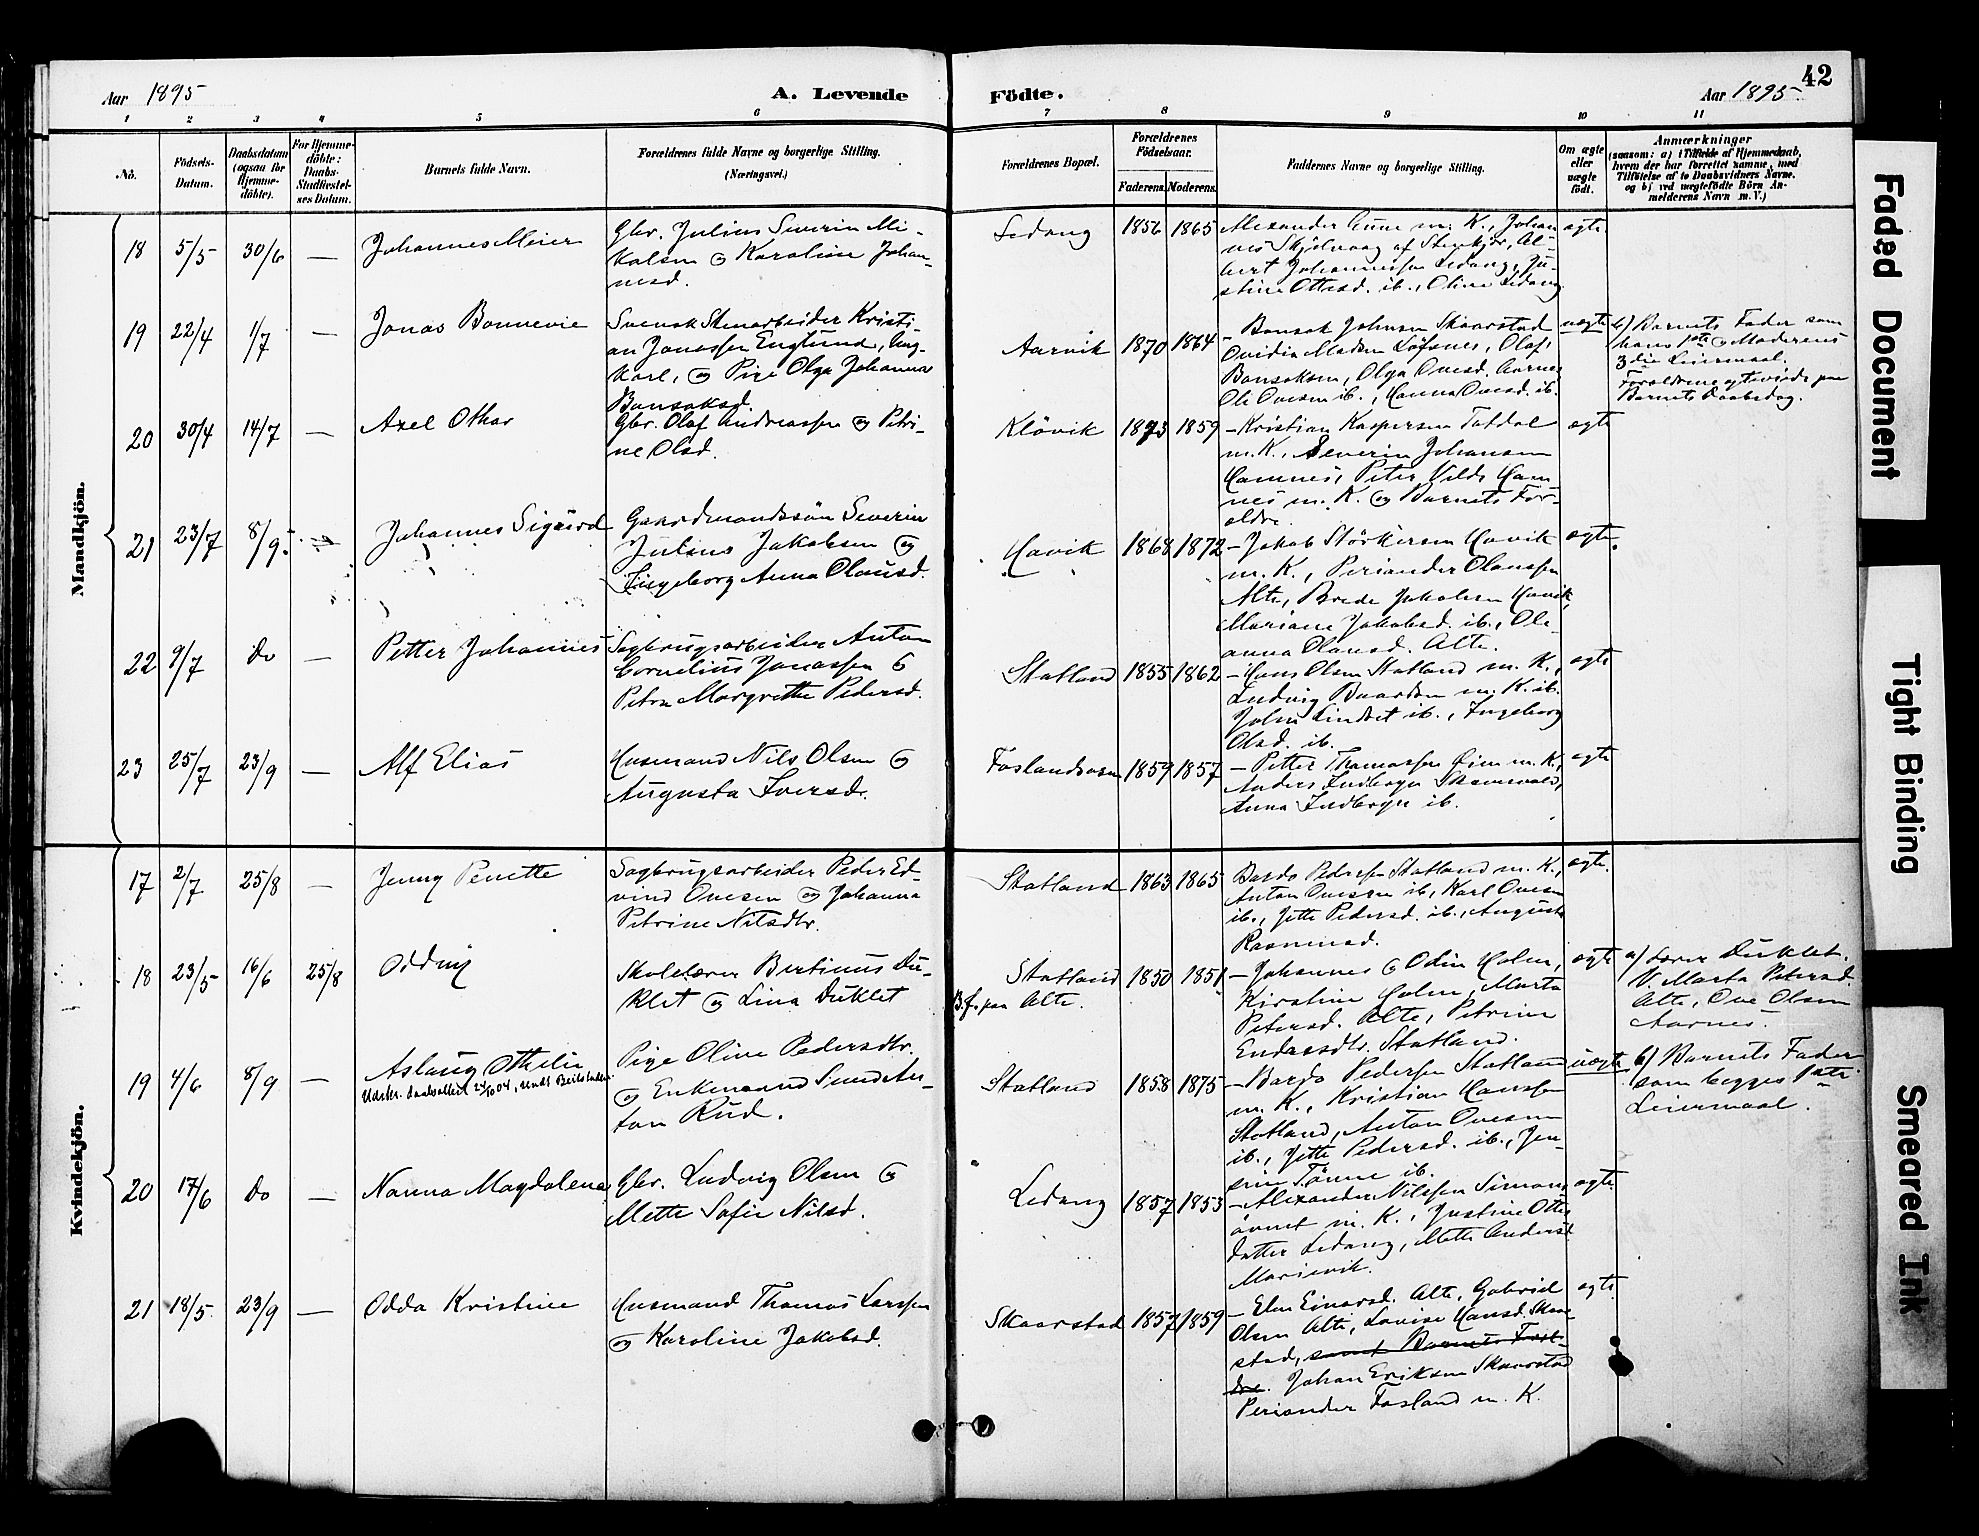 Aar 1895
A. Levende
Födte.
Aar 1895
42
1 2 3 4 5 6 7 8 9 10 11
No.
Födsels-
Datum.
Daabsdatum
(ogsaa for
Hjemme-
döbte).
For Hjemme-
döbte:
Daabs-
Stadfæstel-
ses Datum.
Barnets fulde Navn.
Forældrenes fulde Navne og borgerlige Stilling.
(Næringsvei.)
Forældrenes Bopæl.
Forældrenes
Födselsaar.
Faderens. Moderens.
Faddernes Navne og borgerlige Stilling.
Om ægte
eller
uægte
födt.
Anmærkninger
(saasom: a) i Tilfælde af Hjemmedaab,
hvem der har forrettet samme, med
Tilföielse af to Daabsvidners Navne.
og b) ved uægtefödte Börn An-
melderens Navn m. V.)
Mandkjön.
18 5/5 30/6 — Johannes Meier
Gbr. Julius Severin Mi-
kalsen og Karoline Johan-
nesd.
Ledang 1856 1865
Alexander Aune m. K., Johan-
nes Skjölvaag af Stenkjær, Al-
bert Johannessen Ledang, Ju-
stine Ottesd. ib., Oline Ledang
ægte
19 22/4 1/7 — Jonas Bonnevie
Svensk Stenarbeider Kristi-
an Jonassen Englund, Ung-
karl, og Pige Olga Johanna
Bonsaksd.
Aarvik 1870 1864
— Bonsak Johnsen Skaarstad
Ovidia Madsen Löfsnes, Olaf
Bonsaksen, Olga Ovesd. Aarnes
Ole Ovesen ib., Hanna Ovesd. ib.
uægte
b) Barnets Fader som
hans 1ste og Moderens
3die Leiermaal.
Forældrene ægteviede paa
Barnets Daabsdag.
20 30/4 14/7 — Axel Othar
Gbr. Olaf Andreassen og Petri-
ne Olsd.
Klövik 1873 1859
— Kristian Kaspersen Tatdal
m. K., Severin Johansen
Hamnes, Peter Vilds Ham-
nes m. K. og Barnets For-
ældre.
ægte
21 23/7 8/9 — Johannes Sigurd
Gaardmandssön Severin
Julius Jakobsen og
Ingeborg Anna Olausd.
Havik 1868 1872
— Jakob Störkersen Havik
m. K., Periander Olaussen
Alte, Brede Jakobsen Havik,
Mariane Jakobsd. ib., Ole-
anna Olausd. Alte.
ægte.
22 9/7 Do — Petter Johannes
Sagbrugsarbeider Anton
Cornelius Jonassen og
Petra Margrethe Pedersd.
Statland 1855 1862
— Hans Olsen Statland m. K.,
Ludvig Baardsen m. K. ib.
John Lindset ib., Ingeborg
Olsd. ib.
ægte
23 25/7 23/9 — Alf Elias
Husmand Nils Olsen og
Augusta Iversd.
Foslandsosen 1859 1857
— Petter Thomassen Öien m. K.,
Anders Indbergn
Anna Indbergn ib.
ægte
Kvindekjön.
17 2/7 25/8 — Jenny Penette
Sagbrugsarbeider Peder Ed-
vind Ovesen og Johanna
Petrine Nilsdtr.
Statland 1863 1865
Bardo Pedersen Statland m. K.,
Anton Ovesen ib., Karl Ovesen
ib., Jette Pedersd. ib., Augusta
Rasmusd.
ægte.
18 23/5 16/6 25/8 Oddny
Skolelærer Bertinus Du-
klet og Lina Duklet
Statland
B.f. paa Alte.
1850 1851
— Johannes og Odin Holm,
Kirstine Holm, Marta
Petersd. Alte, Petrine
Endressdtr. Statland.
ægte
a) Lærer Duklet.
V. Marta Petersd.
Alte, Ove Olsen
Aarnes.
19 4/6 8/9 — Aslaug Othelie
Udskr. daabsattest 24/10 04,
Pige Oline Pedersdtr.
og Enkemand Svend An-
ton Rud.
Statland 1858 1875
— Bardo Pedersen Statland
m. K., Kristian Hanssen
Statland, Anton Ovesen
ib., Jette Pedersd. ib., Jen-
sine Tönne ib.
uægte
b) Barnets Fader
som begges 1ste
Leiermaal.
20 17/6 Do — Nanna Magdalena
Gbr. Ludvig Olsen og
Mette Sofie Nilsd.
Ledang 1857 1853
— Alexander Nilssen Simon-
övret m. K., Justine Ottes
datter Ledang, Mette Andersd
Marievik.
ægte.
21 18/5 23/9 — Odda Kristine
Husmand Thomas Larssen
og Karoline Jakobsd.
Skaarstad 1857 1859
— Elen Einarsd. Alte, Gabriel
Olsen Alte, Lovise Hansd. Skaar-
stad, samt Barnets Foræl-
dre. Johan Eriksen Skaarstad
Periander Fosland m. K.
ægte
Faded Document
Tight Binding
Smeared Ink